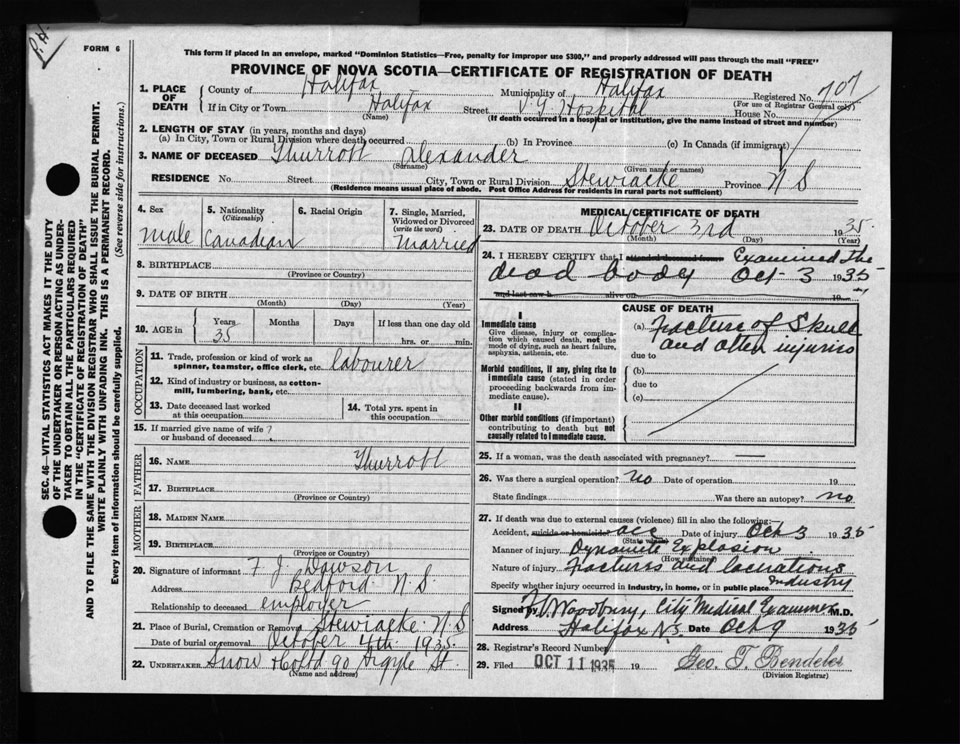 P.H.
FORM 6
This form if placed in an envelope, marked "Dominion Statistics—Free, penalty for improper use $300," and properly addressed will pass through the mail "FREE"
PROVINCE OF NOVA SCOTIA—CERTIFICATE OF REGISTRATION OF DEATH
1. PLACE OF DEATH County of Halifax Municipality of Halifax Registered No. 707
(For use of Registrar General only)
If in City or Town Halifax Street V.G. Hospital House No.
(Name) (If death occurred in a hospital or institution, give the name instead of street and number)
2. LENGTH OF STAY (in years, months and days)
(a) In City, Town or Rural Division where death occurred (b) In Province (c) In Canada (if immigrant)
3. NAME OF DECEASED Thurrott Alexander
(Surname) (Given name or names)
RESIDENCE No. Street City, Town or Rural Division Stewiacke Province N S
(Residence means usual place of abode. Post Office Address for residents in rural parts not sufficient)
SEC. 46—VITAL STATISTICS ACT MAKES IT THE DUTY
OF THE UNDERTAKER OR PERSON ACTING AS UNDER-
TAKER TO OBTAIN ALL THE PARTICULARS REQUIRED
IN THE "CERTIFICATE OF REGISTRATION OF DEATH"
AND TO FILE THE SAME WITH THE DIVISION REGISTRAR WHO SHALL ISSUE THE BURIAL PERMIT.
WRITE PLAINLY WITH UNFADING INK. THIS IS A PERMANENT RECORD.
Every item of information should be carefully supplied. (See reverse side for instructions.)
4. Sex Male
5. Nationality (Citizenship) Canadian
6. Racial Origin
7. Single, Married, Widowed or Divorced (write the word) Married
8. BIRTHPLACE
(Province or Country)
9. DATE OF BIRTH
(Month) (Day) (Year)
10. AGE in Years 35 Months Days If less than one day old
hrs. or min.
OCCUPATION
11. Trade, profession or kind of work as spinner, teamster, office clerk, etc. labourer
12. Kind of industry or business, as cotton-mill, lumbering, bank, etc.
13. Date deceased last worked at this occupation
14. Total yrs. spent in this occupation
15. If married give name of wife or husband of deceased ?
FATHER
16. NAME Thurrott
17. BIRTHPLACE
(Province or Country)
MOTHER
18. MAIDEN NAME
19. BIRTHPLACE
(Province or Country)
20. Signature of informant F. J. Dawson
Address Bedford N S
Relationship to deceased employer
21. Place of Burial, Cremation or Removal Stewiacke N.S
Date of burial or removal October 4th 1935
22. UNDERTAKER Snow & Co Ltd 90 Argyle St.
(Name and address)
MEDICAL CERTIFICATE OF DEATH
23. DATE OF DEATH October 3rd 1935
(Month) (Day) (Year)
24. I HEREBY CERTIFY that I attended deceased from Examined the
dead body Oct-3 1935
and last saw h alive on 19
I
Immediate cause
Give disease, injury or complication which caused death, not the mode of dying, such as heart failure, asphyxia, asthenia, etc.
Morbid conditions, if any, giving rise to immediate cause (stated in order proceeding backwards from immediate cause).
II
Other morbid conditions (if important) contributing to death but not causally related to immediate cause.
CAUSE OF DEATH
(a) Fracture of Skull
and other injuries
due to
(b)
due to
(c)
25. If a woman, was the death associated with pregnancy? —
26. Was there a surgical operation? no Date of operation 19
State findings Was there an autopsy? no
27. If death was due to external causes (violence) fill in also the following:
Accident, suicide or homicide acc Date of injury Oct 3 1935
(State which)
Manner of injury Dynamite Explosion
(How sustained)
Nature of injury Fractures and lacerations
Specify whether injury occurred in industry, in home, or in public place Industry
Signed by Woodbury, City Medical Examiner M.D.
Address Halifax N.S Date Oct 9 1935
28. Registrar's Record Number
29. Filed OCT 11 1935 19 Geo. T. Bendeler
(Division Registrar)